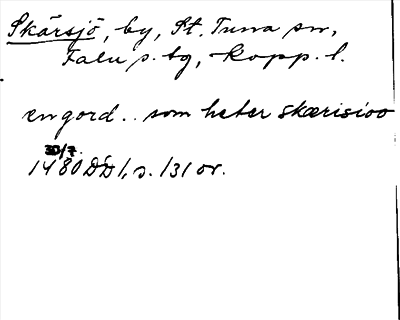 Skärsjö, by, St. Tuna sn,
Falu s. tg, Kopp. l.
en gord.. som heter skærisioo
30/7.
1480 DD 1, s. 131 or.